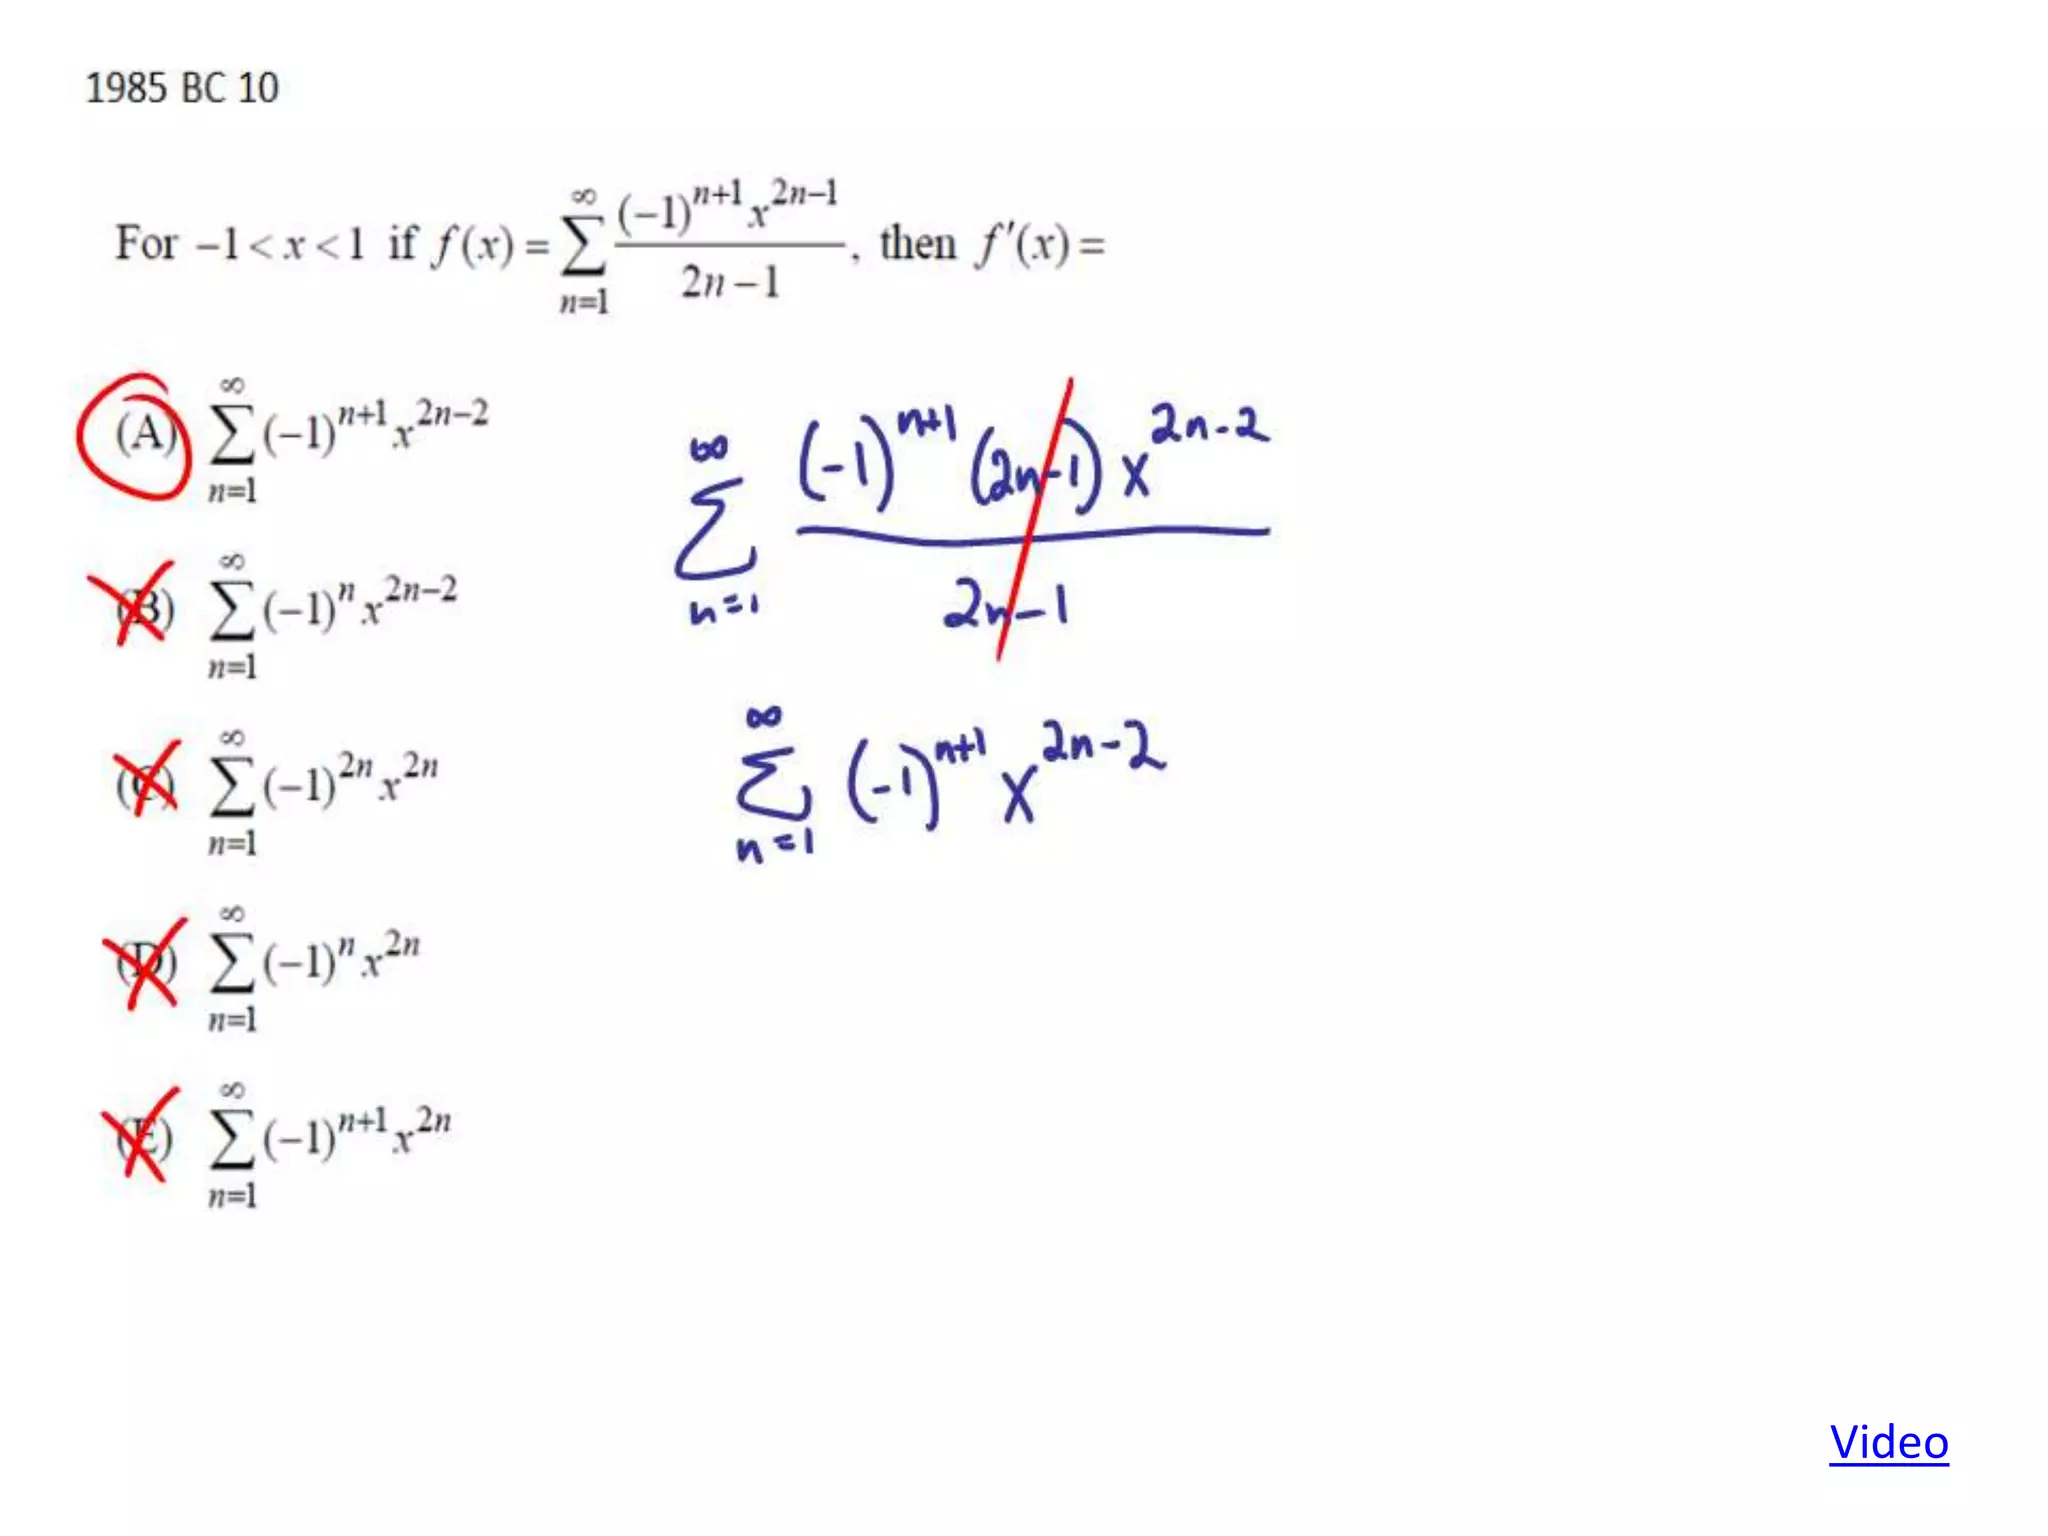 1985 BC 10
For −1 < x < 1 if f(x) = ∑_{n=1}^{∞} \frac{(−1)^{n+1} x^{2n−1}}{2n−1}, then f′(x) =
(A) ∑_{n=1}^{∞} (−1)^{n+1} x^{2n−2}
∑_{n=1}^{∞} \frac{(-1)^{n+1} (2n-1) x^{2n-2}}{2n-1}
(B) ∑_{n=1}^{∞} (−1)^{n} x^{2n−2}
(C) ∑_{n=1}^{∞} (−1)^{2n} x^{2n}
∑_{n=1}^{∞} (-1)^{n+1} x^{2n-2}
(D) ∑_{n=1}^{∞} (−1)^{n} x^{2n}
(E) ∑_{n=1}^{∞} (−1)^{n+1} x^{2n}
Video